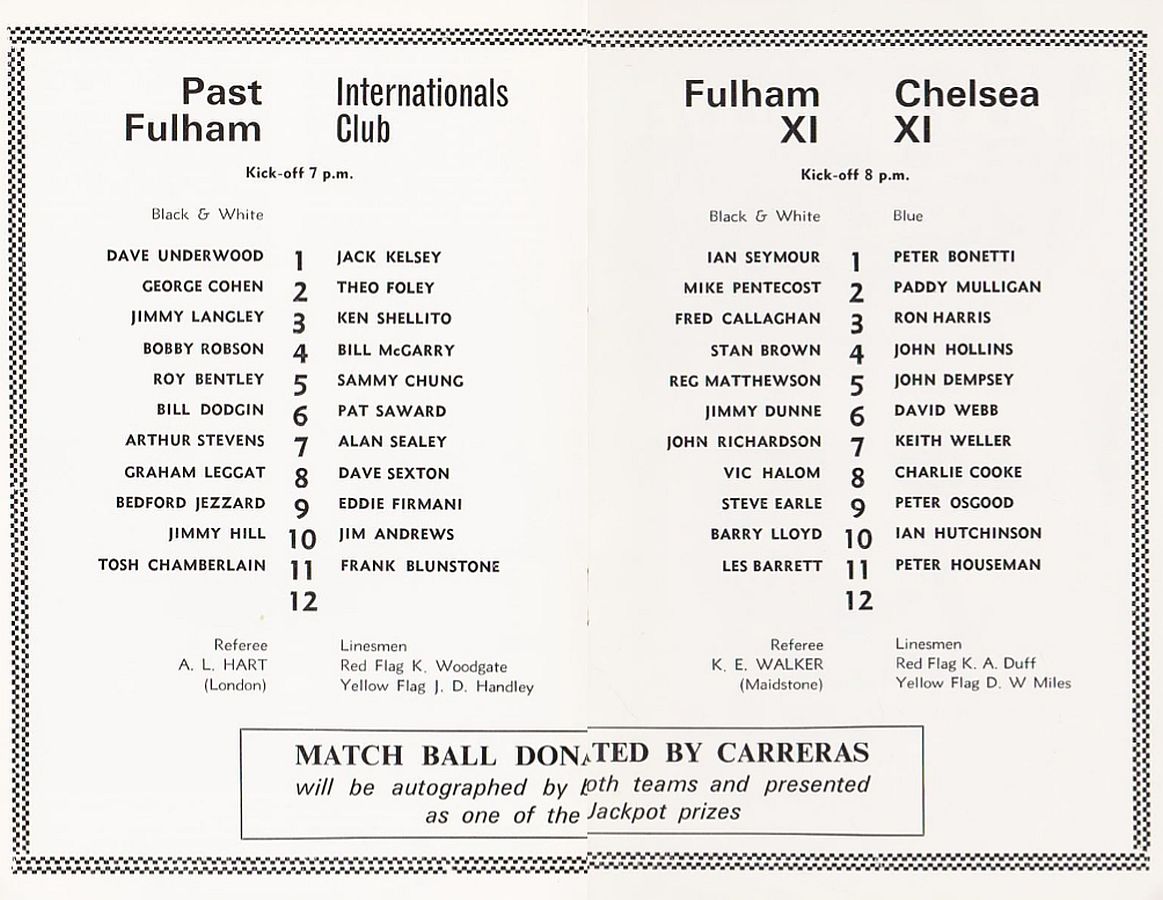 Past Internationals
Fulham Club
Kick-off 7 p.m.
Black & White
DAVE UNDERWOOD 1 JACK KELSEY
GEORGE COHEN 2 THEO FOLEY
JIMMY LANGLEY 3 KEN SHELLITO
BOBBY ROBSON 4 BILL McGARRY
ROY BENTLEY 5 SAMMY CHUNG
BILL DODGIN 6 PAT SAWARD
ARTHUR STEVENS 7 ALAN SEALEY
GRAHAM LEGGAT 8 DAVE SEXTON
BEDFORD JEZZARD 9 EDDIE FIRMANI
JIMMY HILL 10 JIM ANDREWS
TOSH CHAMBERLAIN 11 FRANK BLUNSTONE
12
Referee Linesmen
A. L. HART Red Flag K. Woodgate
(London) Yellow Flag J. D. Handley
Fulham Chelsea
XI XI
Kick-off 8 p.m.
Black & White Blue
IAN SEYMOUR 1 PETER BONETTI
MIKE PENTECOST 2 PADDY MULLIGAN
FRED CALLAGHAN 3 RON HARRIS
STAN BROWN 4 JOHN HOLLINS
REG MATTHEWSON 5 JOHN DEMPSEY
JIMMY DUNNE 6 DAVID WEBB
JOHN RICHARDSON 7 KEITH WELLER
VIC HALOM 8 CHARLIE COOKE
STEVE EARLE 9 PETER OSGOOD
BARRY LLOYD 10 IAN HUTCHINSON
LES BARRETT 11 PETER HOUSEMAN
12
Referee Linesmen
K. E. WALKER Red Flag K. A. Duff
(Maidstone) Yellow Flag D. W Miles
MATCH BALL DONATED BY CARRERAS
will be autographed by both teams and presented
as one of the Jackpot prizes